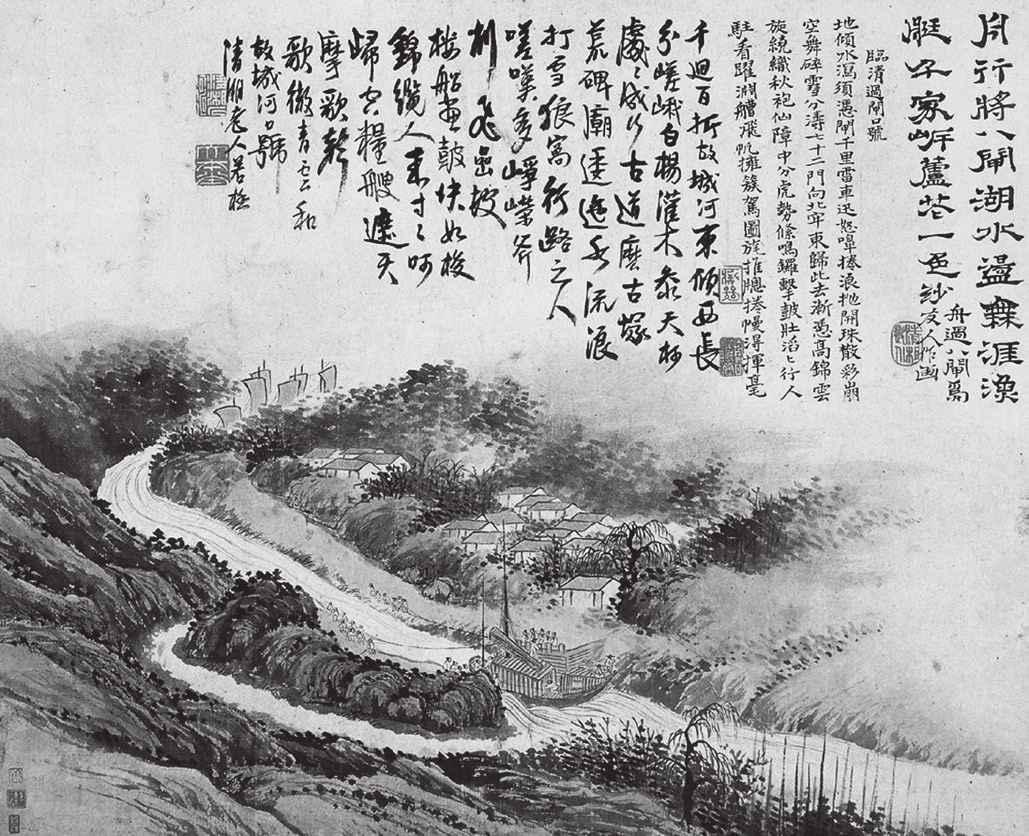 舟行將八閘湖水盪無涯漁
艇 家岍蘆花一色紗
舟過八閘爲
友人作画
臨清過閘口號
地傾水瀉須憑閘千里雷車迅怒嘷捲浪抛開珠散彩崩
空舞碎雪分濤七十二門向北牢東歸此去漸憑高錦雲
旋繞織秋袍仙障中分虎勢條鳴鑼擊皷壯滔〻行人
駐看躍淵艚飛帆擁簇駕圖旄推牕捲幔得揮毫
千迴百折故城河東傾西長
分嵯峨白楊灌木參天柯
處〻成行古道麽古塚
荒碑廟逶迤水流浪
打雪狼窩行路之人
嗟嘆多崢嶸斧
削 坡
樓船畫皷 如梭
錦纜人來寸〻呵
歸空糧艘遮天
摩歌
歌徹青雲和
故城河口號
清湘老人若極